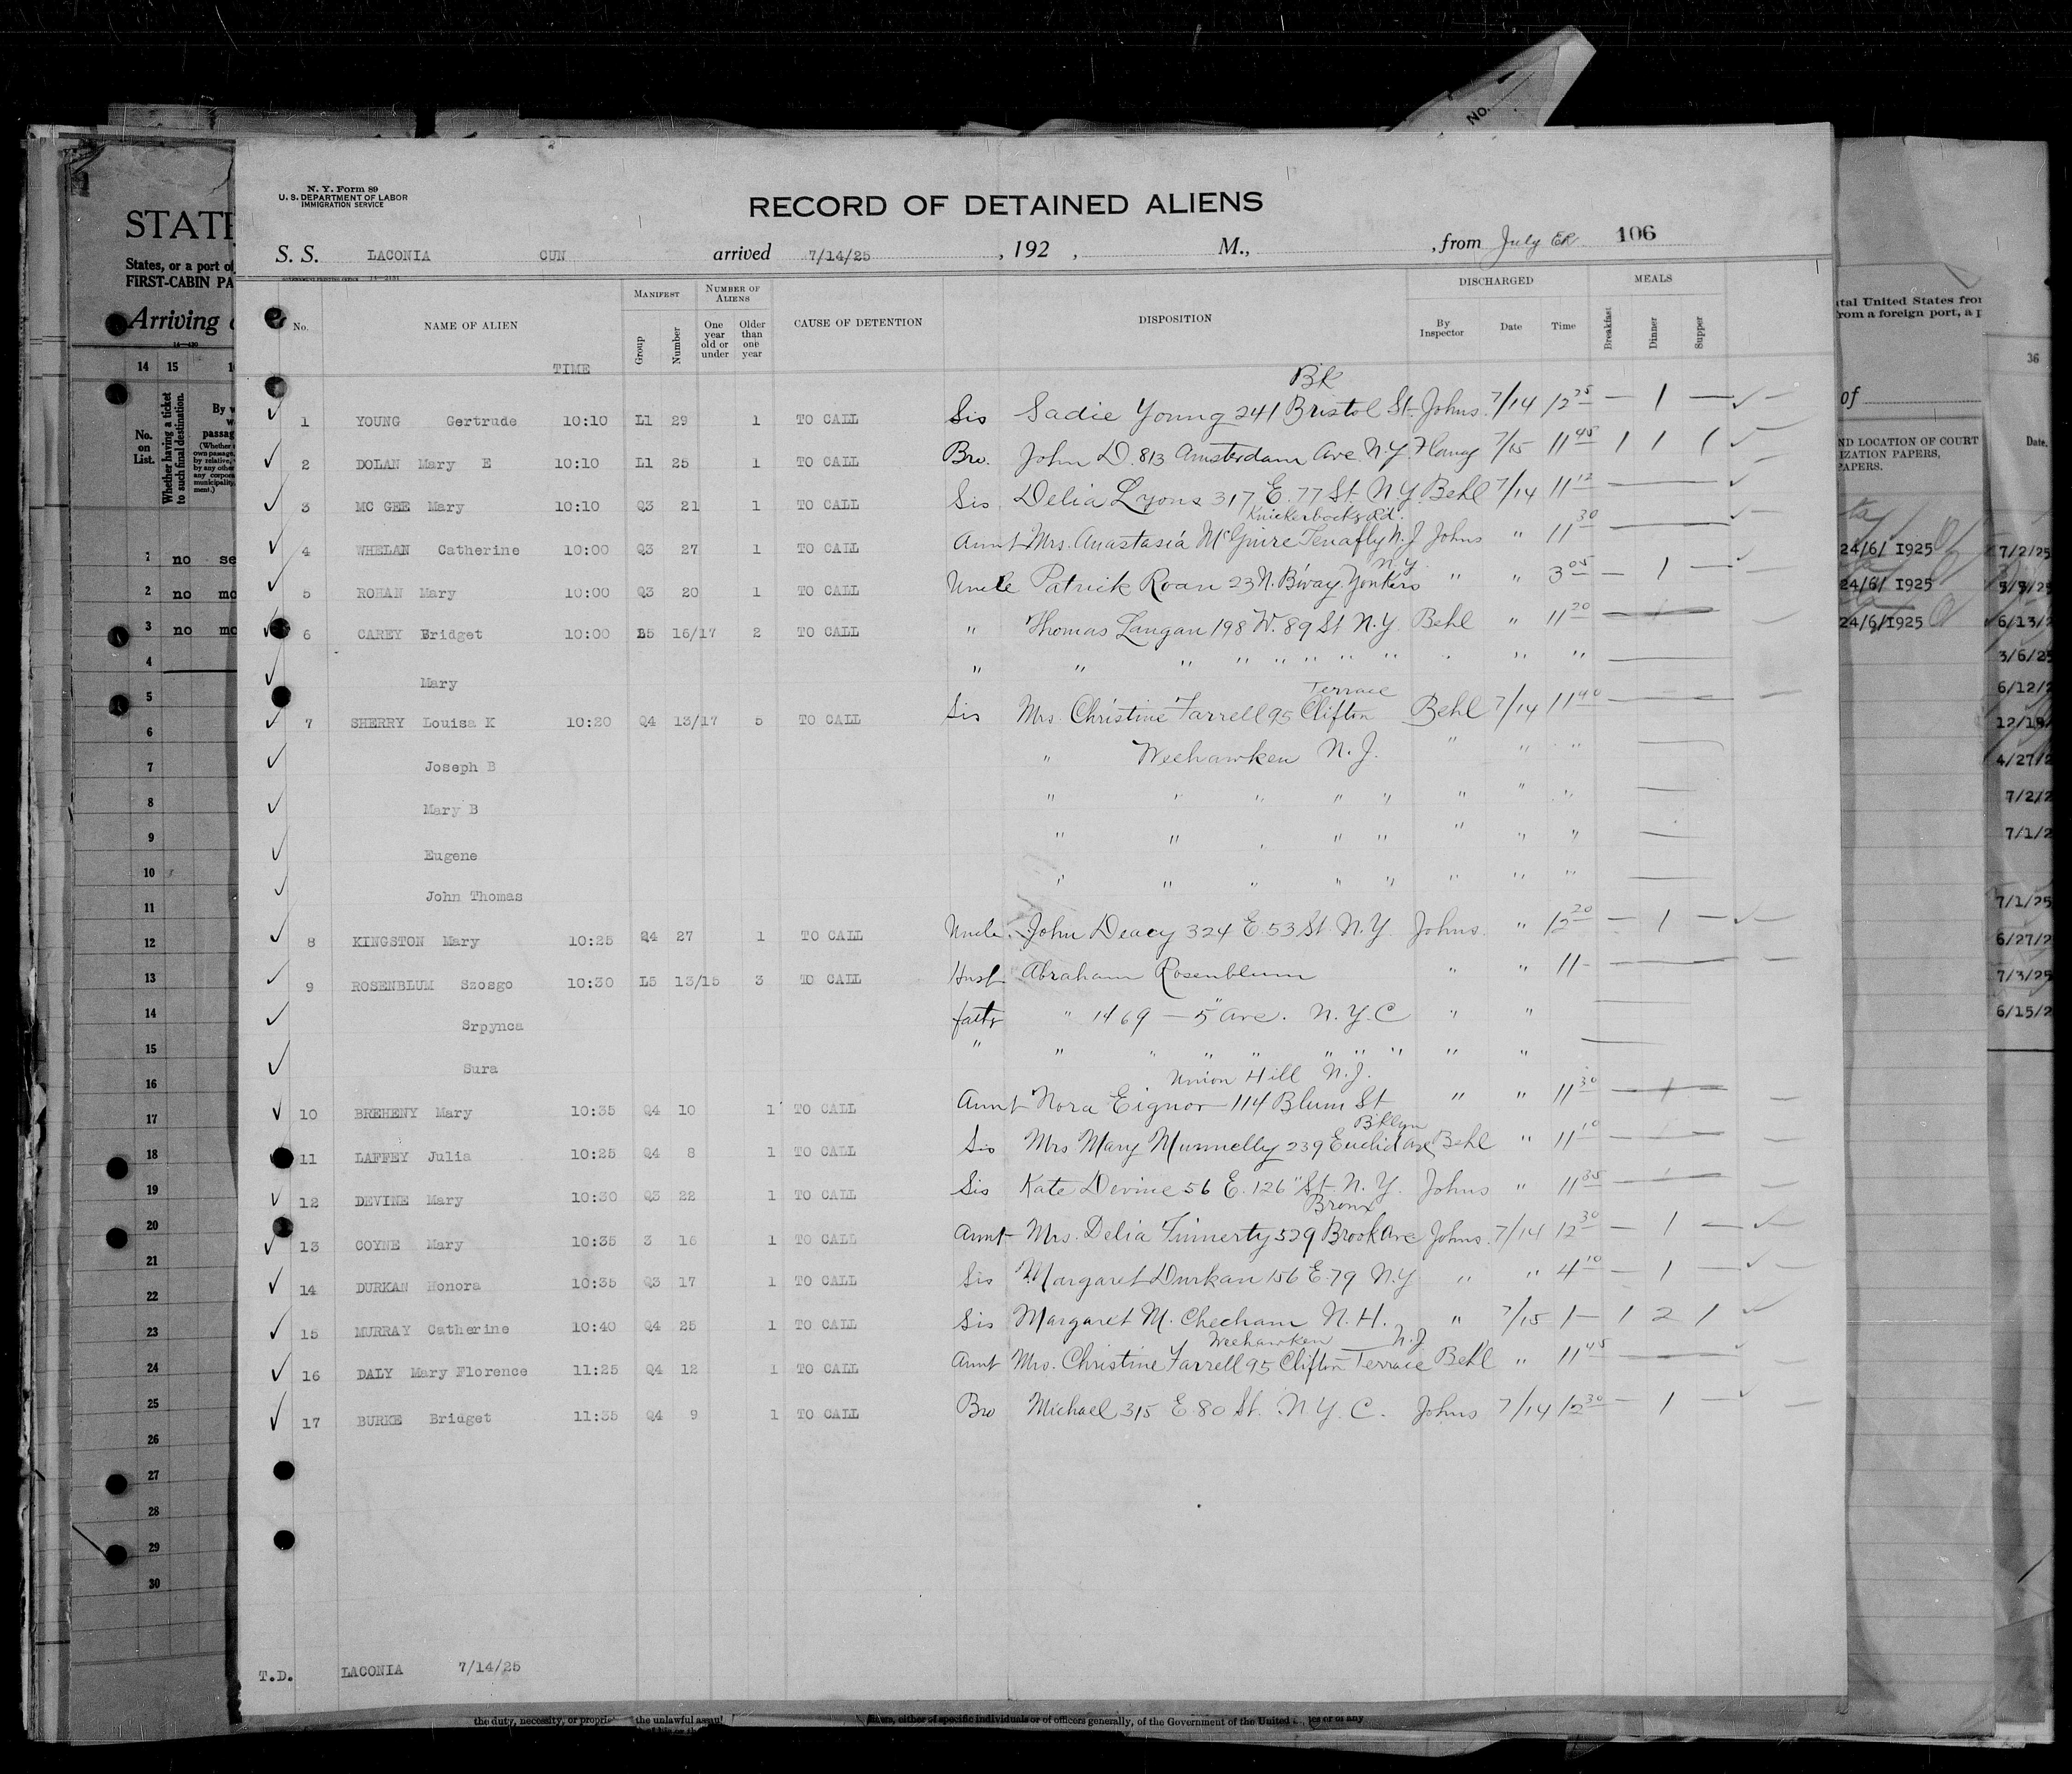 N. Y. Form 89
U. S. DEPARTMENT OF LABOR
IMMIGRATION SERVICE
RECORD OF DETAINED ALIENS
S. S. LACONIA CUN arrived 7/14/25, 192 , M., , from July ER 106
GOVERNMENT PRINTING OFFICE
No. NAME OF ALIEN TIME MANIFEST Group Number NUMBER OF ALIENS One year old or under Older than one year CAUSE OF DETENTION DISPOSITION DISCHARGED By Inspector Date Time MEALS Breakfast Dinner Supper
BK
1 YOUNG Gertrude 10:10 L1 29 1 TO CALL Sis Sadie Young 241 Bristol St. Johns. 7/14 12 25 — 1 —
2 DOLAN Mary E 10:10 L1 25 1 TO CALL Bro. John D. 813 Amsterdam Ave N.Y. 7/15 11 45 1 1 1
3 MC GEE Mary 10:10 Q3 21 1 TO CALL Sis Delia Lyons 317 E. 77 St. N.Y. Behl 7/14 11 12
Knickerbocker Rd.
4 WHELAN Catherine 10:00 Q3 27 1 TO CALL Aunt Mrs. Anastasia McGuire Tenafly N.J Johns " 11 30
N.Y.
5 ROHAN Mary 10:00 Q3 20 1 TO CALL Uncle Patrick Roan 23 N. B'way Yonkers " " 3 05 — 1 —
6 CAREY Bridget 10:00 L5 16/17 2 TO CALL " Thomas Langan 198 W. 89 St N.Y Behl " 11 20
Mary " " " " " " " " " "
Terrace
7 SHERRY Louisa K 10:20 Q4 13/17 5 TO CALL Sis Mrs. Christine Farrell 95 Clifton Behl 7/14 11 40
Joseph B " Weehawken N.J. " " "
Mary B " " " " " " " "
Eugene " " " " " " "
John Thomas " " " " " " " "
8 KINGSTON Mary 10:25 Q4 27 1 TO CALL Uncle John Deacy 324 E. 53 St N.Y. Johns. " 12 20 — 1 —
9 ROSENBLUM Szosgo 10:30 L5 13/15 3 TO CALL Husb Abraham Rosenblum " " 11 -
Srpynca fathr " 1469 — 5" Ave. N.Y.C " "
Sura " " " " " " " " " "
Union Hill N.J.
10 BREHENY Mary 10:35 Q4 10 1 TO CALL Aunt Nora Eignor 114 Blum St " " 11 30
Bklyn
11 LAFFEY Julia 10:25 Q4 8 1 TO CALL Sis Mrs Mary Munnelly 239 Euclid Ave Behl " 11 10
12 DEVINE Mary 10:30 Q3 22 1 TO CALL Sis Kate Devine 56 E. 126" St. N.Y. Johns " 11 35
Bronx
13 COYNE Mary 10:35 3 16 1 TO CALL Aunt Mrs. Delia Finnerty 529 Brook Ave Johns. 7/14 12 30 — 1 —
14 DURKAN Honora 10:35 Q3 17 1 TO CALL Sis Margaret Durkan 156 E. 79 N.Y " " 4 10 — 1 —
15 MURRAY Catherine 10:40 Q4 25 1 TO CALL Sis Margaret M. Checham N.H. " 7/15 1 — 1 2 1
Weehawken N.J
16 DALY Mary Florence 11:25 Q4 12 1 TO CALL Aunt Mrs. Christine Farrell 95 Clifton Terrace Behl " 11 45
17 BURKE Bridget 11:35 Q4 9 1 TO CALL Bro Michael 315 E. 80 St. N.Y.C. Johns 7/14 12 30 — 1 —
T.D. LACONIA 7/14/25
STATE
States, or a port of
FIRST-CABIN PA
Arriving
14 15
No. on List.
Whether having a ticket to such final destination.
1 no se
2 no mo
3 no mo
4
5
6
7
8
9
10
11
12
13
14
15
16
17
18
19
20
21
22
23
24
25
26
27
28
29
30
No.
tal United States from
rom a foreign port, a p
of
ND LOCATION OF COURT
IZATION PAPERS,
PAPERS.
24/6/ 1925
24/6/ 1925
24/6/1925
36
Date.
7/2/25
6/13/2
3/6/25
6/12/2
12/18/
4/27/2
7/2/2
7/1/2
7/1/25
6/27/2
7/3/25
6/15/2
the duty, necessity, or propri
the unlawful assau
either of specific individuals or of officers generally, of the Government of the United